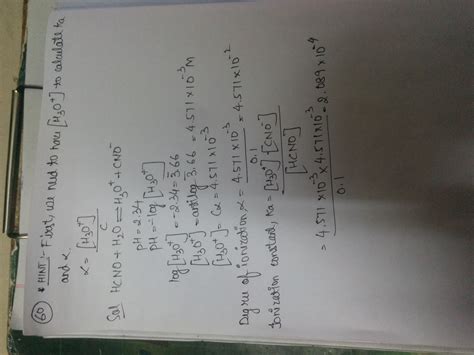 60 * HINT:- First, we need to have [H₃O⁺] to calculate Ka
and α
α = [H₃O⁺]/C
Sol HCNO + H₂O ⇌ H₃O⁺ + CNO⁻
pH = 2.34
pH = -log[H₃O⁺]
log[H₃O⁺] = -2.34 = 3̅.66
[H₃O⁺] = antilog 3̅.66 = 4.571×10⁻³M
[H₃O⁺] = Cα = 4.571×10⁻³
Degree of ionization α = 4.571×10⁻³/0.1 = 4.571×10⁻²
Ionization constant, Ka = [H₃O⁺][CNO⁻]/[HCNO]
= 4.571×10⁻³×4.571×10⁻³/0.1 = 2.089×10⁻⁴